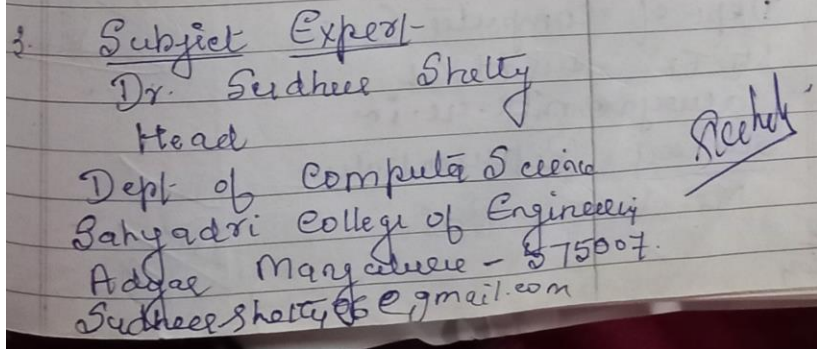 3. Subject Expert
Dr. Sudheer Shetty
Head
Dept of Computer Science
Sahyadri College of Engineering
Adyar Mangaluru - 575007.
@gmail.com